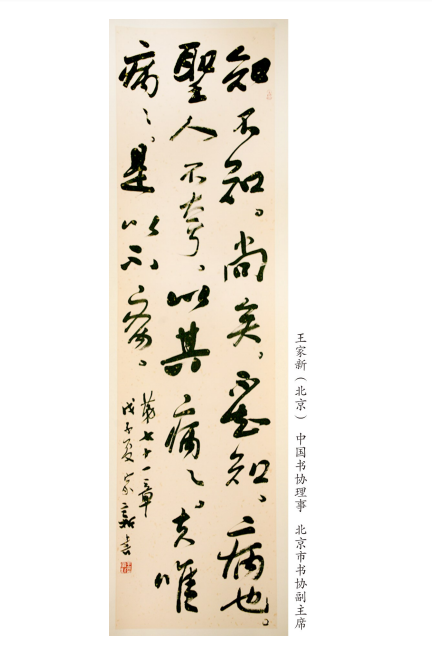 知不知。尚矣。不知知、病也。
聖人不、以其病々。夫唯
病々。是以不病。
第七十一章
戊子夏家新書
王家新（北京） 中国书协理事 北京市书协副主席